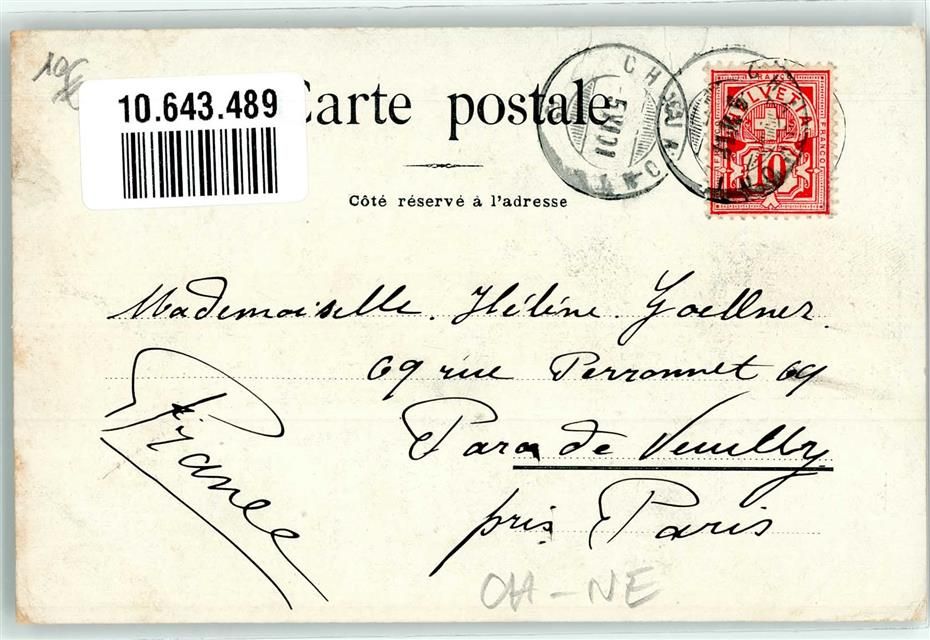 10.643.489
Carte postale
Côté réservé à l'adresse
FRANCO
HELVETIA
10
Mademoiselle. Hélène Goellner.
69 rue Perronnet 69
Parc de Neuilly
près Paris
France
OH-NE